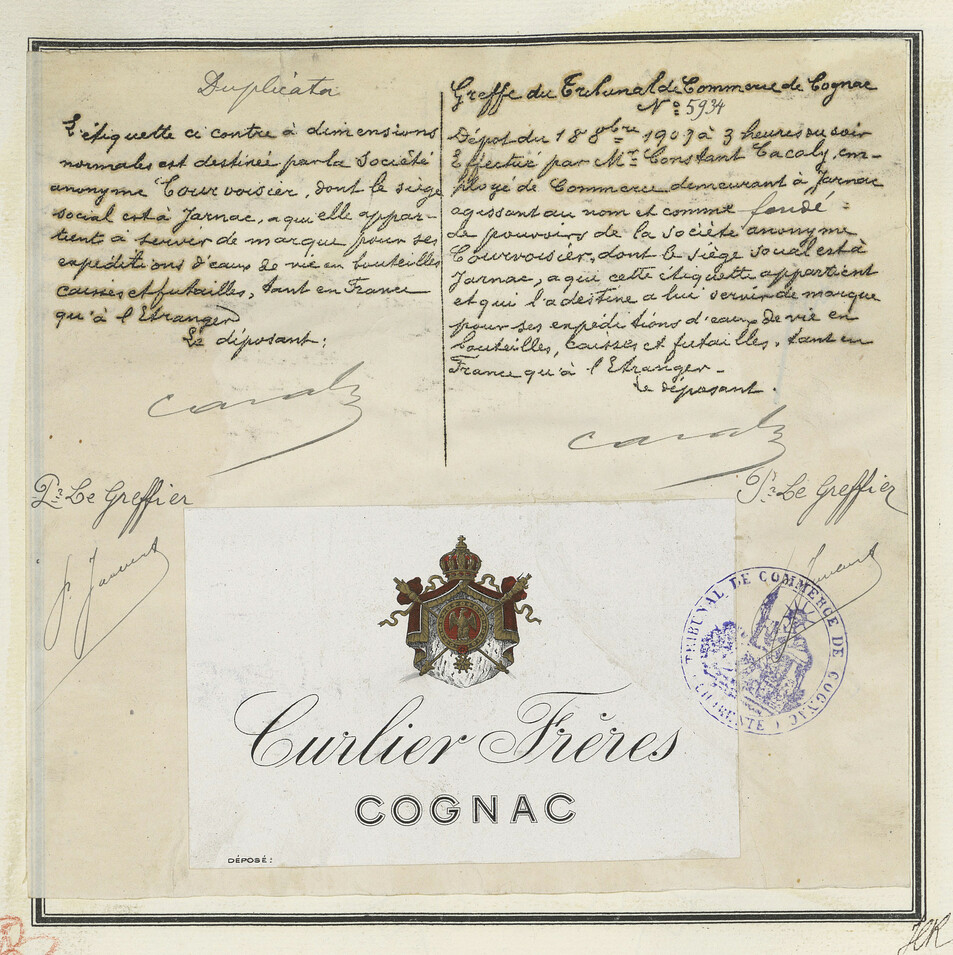 Duplicata
L'étiquette ci contre à dimensions
normales est destinée par la Société
anonyme Courvoisier, dont le siège
social est à Jarnac, a qui elle appar-
tient à servir de marque pour ses
expéditions d'eaux de vie en bouteilles
caisses et futailles, tant en France
qu'à l'Etranger
Le déposant:
Greffe du Tribunal de Commerce de Cognac
N° 5934
Dépot du 18 8bre 1907 à 3 heures du soir
Effectué par Mr Constant Cacaly, em-
ployé de Commerce demeurant à Jarnac
agissant au nom et comme fondé
de pouvoirs de la Société anonyme
Courvoisier, dont le siège social est à
Jarnac, a qui cette étiquette appartient
et qui l'a destine a lui servir de marque
pour ses expéditions d'eaux de vie en
bouteilles, caisses et futailles, tant en
France qu'à l'Etranger-
Le déposant.
Pr Le Greffier
Pr Le Greffier
TRIBUNAL DE COMMERCE DE COGNAC
CHARENTE
Curlier Frères
COGNAC
DÉPOSÉ: